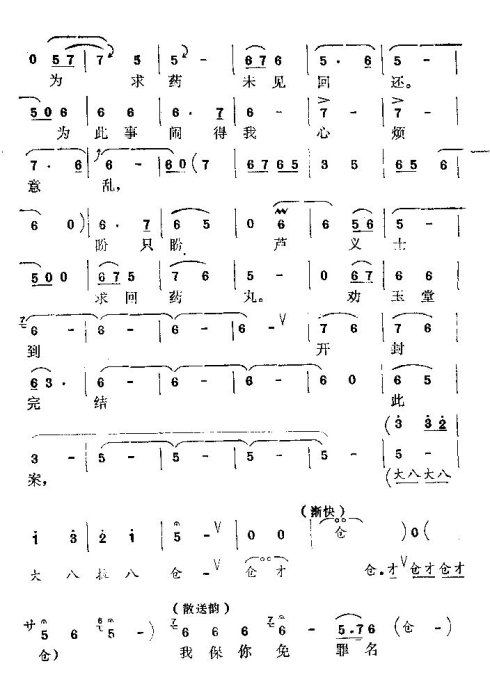 0 5 7 | 7 5 | 5 - | 6 7 6 | 5 · 6 | 5 - |
为 求 药 未 见 回 还。
5 0 6 | 6 6 | 6 · 7 | 6 - | 7 - | 7 - |
为 此 事 闹 得 我 心 烦
7 · 6 | 6 - | 6 0 ( 7 | 6 7 6 5 | 3 5 | 6 5 6 |
意 乱,
6 0 ) | 6 · 7 | 6 5 | 0 6 | 5 6 | 5 -
盼 只 盼 芦 义 士
5 0 0 | 6 7 5 | 7 6 | 5 - | 0 6 7 | 6 5
求 回 药 丸。 劝 玉 堂
6 - | 8 - | 6 - | 6 - V | 7 6 | 7 6
到 开 封
6 3 · | 6 - | 6 - | 6 - | 6 0 | 6 5
完 结 此
( 3 3 2
3 - | 5 - | 5 - | 5 - | 5 - | 5 -
案, (大八大八
(渐快)
1 3 | 2 1 | 5 - V | 0 0 | 仓 ) 0 (
大 八 拉 八 仓 - 仓 才 仓.才 V 仓才仓才
(散送韵)
サ 5 6 5 - ) 6 6 6 6 · - 5 . 7 6 ( 仓 - )
仓) 我 保 你 免 罪 名